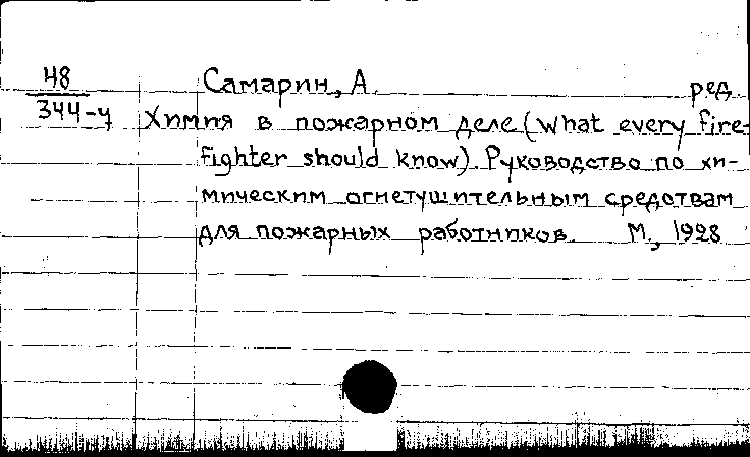 48 Самарин, А. ред.
344-ч Химия в пожарном деле (what every fire-
fighter should know) Руководство по хи-
мическим огнетушительным средствам
для пожарных работников. М., 1928